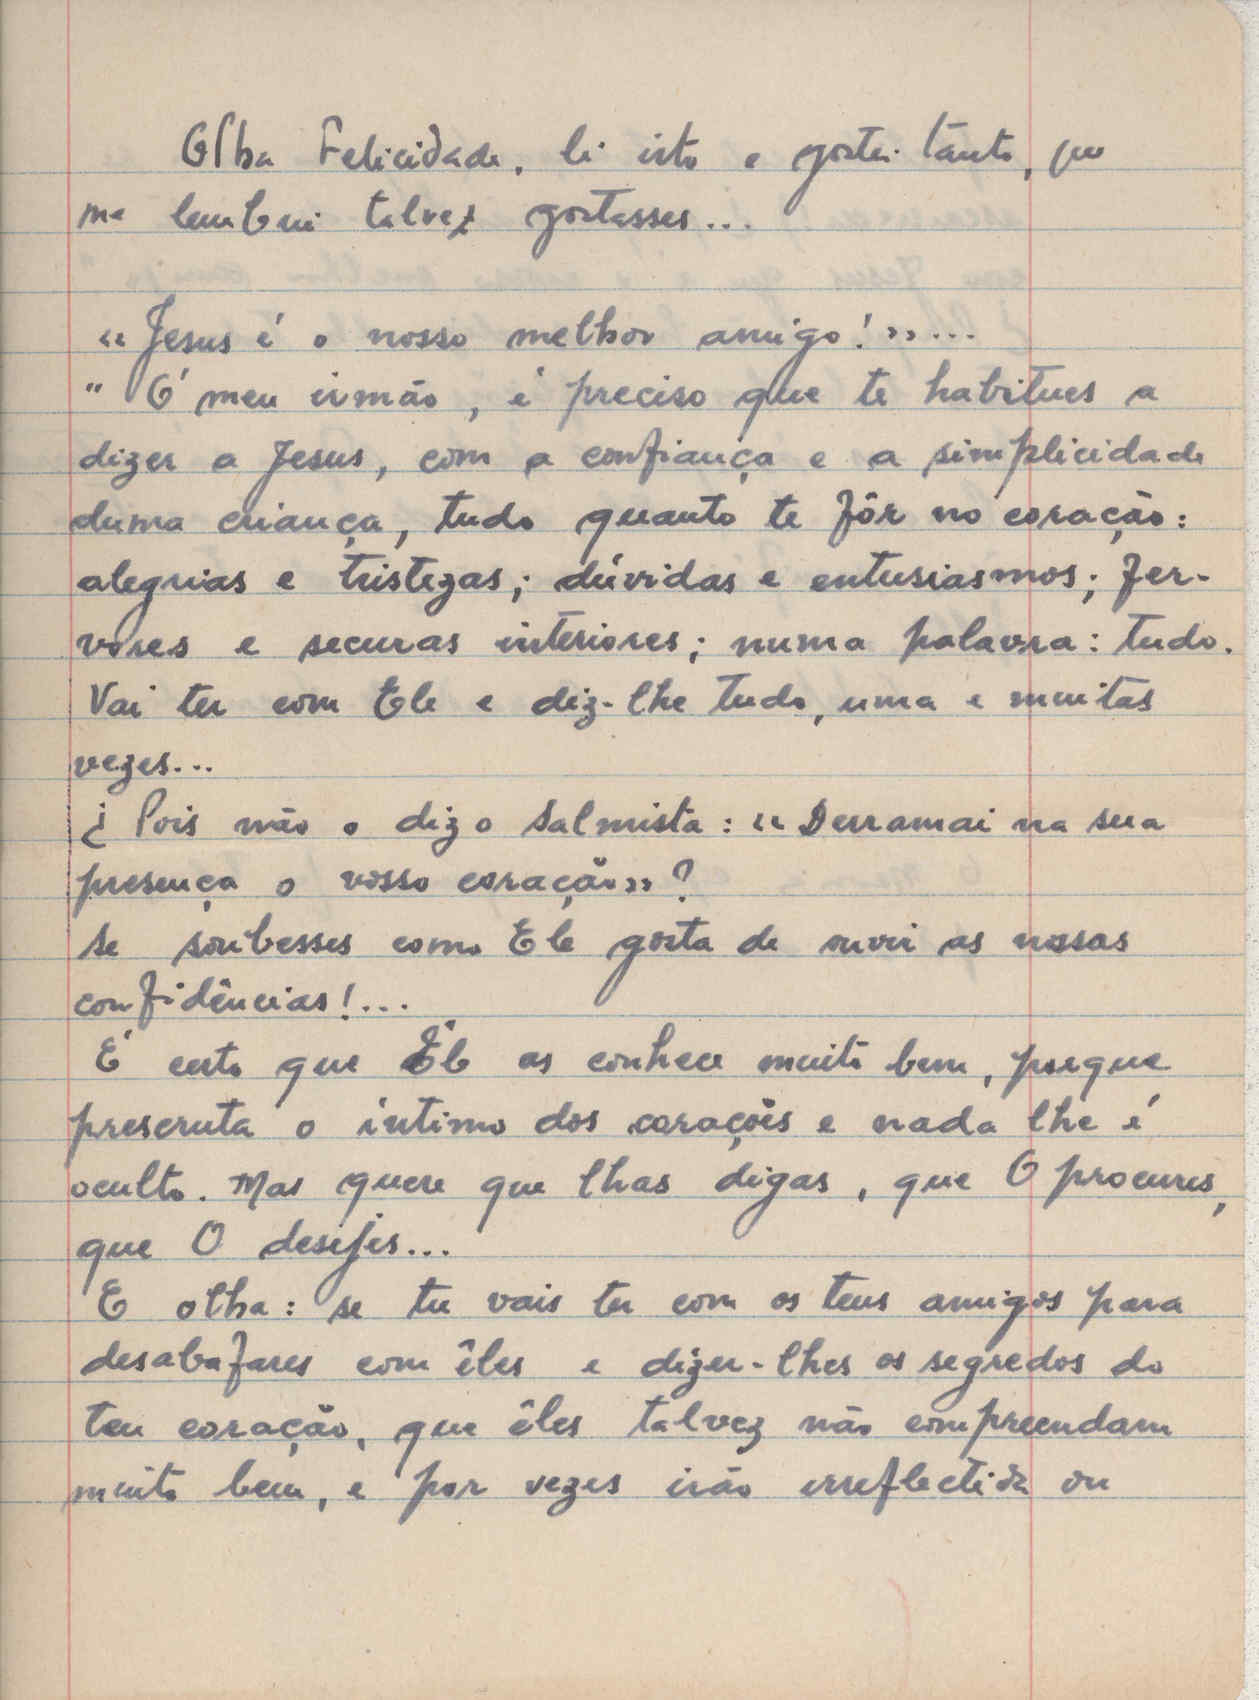 Olha Felicidade, li isto e gostei tanto, que
me lembrei talvez gostasses...
«Jesus é o nosso melhor amigo!»...
"Ó meu irmão, é preciso que te habitues a
dizer a Jesus, com a confiança e a simplicidade
duma criança, tudo quanto te fôr no coração:
alegrias e tristezas; dúvidas e entusiasmos; fer-
vores e securas interiores; numa palavra: tudo.
Vai ter com Ele e diz-lhe tudo, uma e muitas
vezes...
¿ Pois não o diz o Salmista: «Derramai na sua
presença o vosso coração»?
Se soubesses como Ele gosta de ouvir as nossas
confidências!...
É certo que Êle as conhece muito bem, porque
prescruta o íntimo dos corações e nada lhe é
oculto. Mas quere que lhas digas, que O procures,
que O desejes...
E olha: se tu vais ter com os teus amigos para
desabafares com êles e dizer-lhes os segredos do
teu coração, que êles talvez não compreendam
muito bem, e por vezes irão irreflectida ou